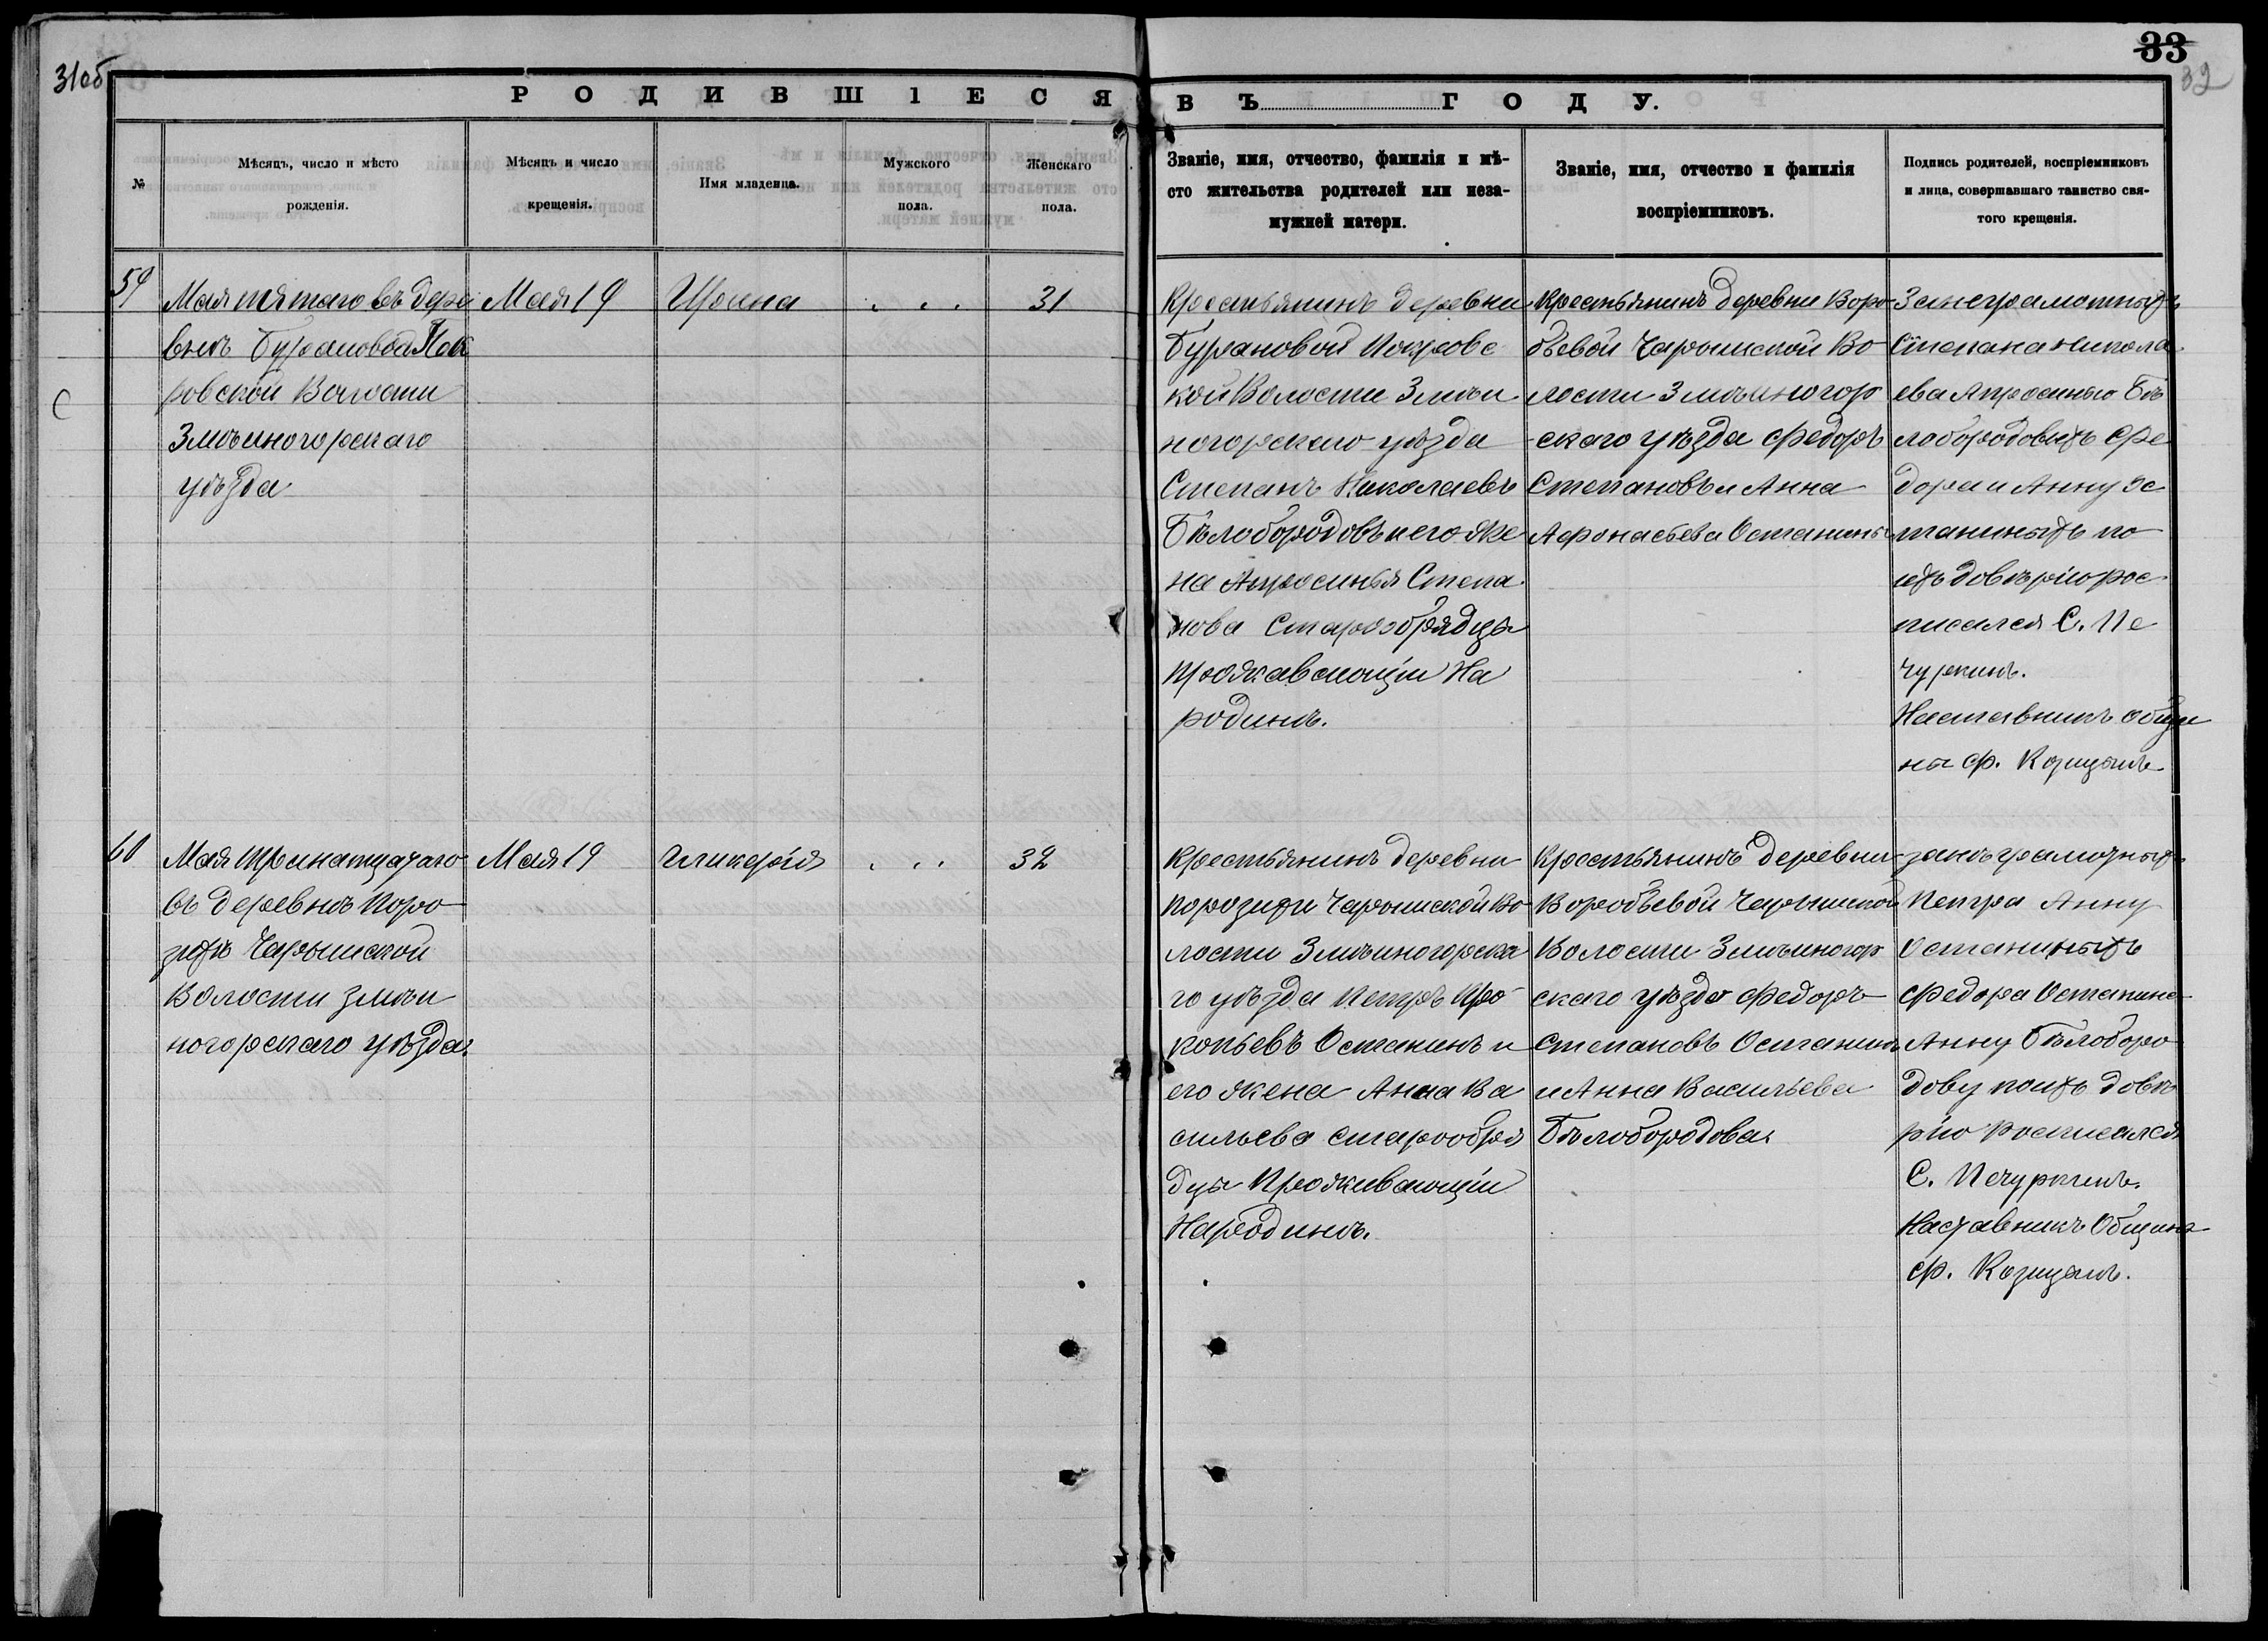 31об
33
32
РОДИВШІЕСЯ ВЪ ГОДУ.
№
Мѣсяцъ, число и мѣсто
рожденія.
Мѣсяцъ и число
крещенія.
Имя младенца.
Мужского
пола.
Женскаго
пола.
Званіе, имя, отчество, фамилія и мѣ-
сто жительства родителей или неза-
мужней матери.
Званіе, имя, отчество и фамилія
воспріемниковъ.
Подпись родителей, воспріемниковъ
и лица, совершавшаго таинство свя-
того крещенія.
59
Мая пятаго въ дере
внѣ Бурановва Пок
ровской Волости
Змѣиногорскаго
уѣзда
Мая 19
Ирина
. . .
31
Крестьянинъ деревни
Бурановой Покровс
кой Волости Змѣи
ногорскаго уѣзда
Степанъ Николаевъ
Бѣлобородовъ и его же
на Апросинья Степа
нова Старообрядцы
Проживающіи На
родинѣ.
Крестьянинъ деревни Воро
бьевой Чарышской Во
лости Змѣиногор
скаго уѣзда Федоръ
Степановъ и Анна
Афонасьева Останины
За неграмотныхъ
Степана Никола
ева Апросинью Бѣ
лобородовыхъ Фе
дора и Анну Ос
таниныхъ по
ихъ довѣрію рос
писался С. Пе
чуркинъ.
Наставникъ общи
ны Ф. Корицынъ
С
60
Мая Тринатцатаго
въ деревнѣ Поро
зихѣ Чарышской
Волости Змѣи
ногорскаго уѣзда.
Мая 19
Гликерія
. . .
32
Крестьянинъ деревни
Порозихи Чарышской Во
лости Змѣиногорска
го уѣзда Петръ Про
копьевъ Останинъ и
его жена Анна Ва
сильева Старообря
дцы Проживающіи
Народинѣ.
Крестьянинъ деревни
Воробьевой Чарышской
Волости Змѣиногор
скаго уѣзда Федоръ
Степановъ Останинъ
и Анна Васильева
Бѣлобородова.
за неграмотныхъ
Петра Анну
Останиныхъ
Федора Останина
Анну Бѣлоборо
дову поихъ довѣ
рію росписался
С. Печуркинъ.
Наставникъ Общины
Ф. Корицынъ.